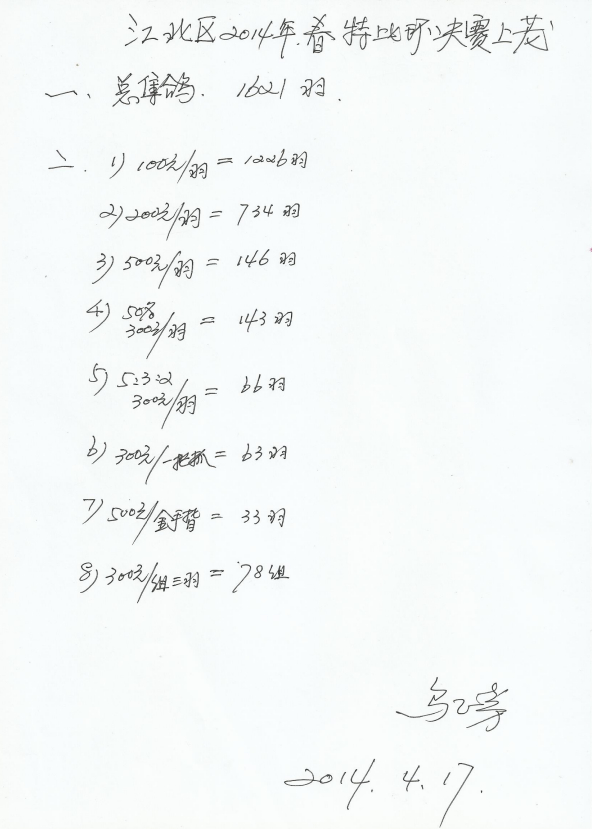 江北区2014年.春特比环决赛上笼
一、总集鸽. 1621羽.
二. 1) 100元/羽 = 1226羽
2) 200元/羽 = 734羽
3) 500元/羽 = 146羽
4) 50% 300元/羽 = 143羽
5) 5:3:2 300元/羽 = 66羽
6) 300元/一把抓 = 63羽
7) 500元/金手指 = 33羽
8) 300元/组三羽 = 78组
2014. 4. 17.